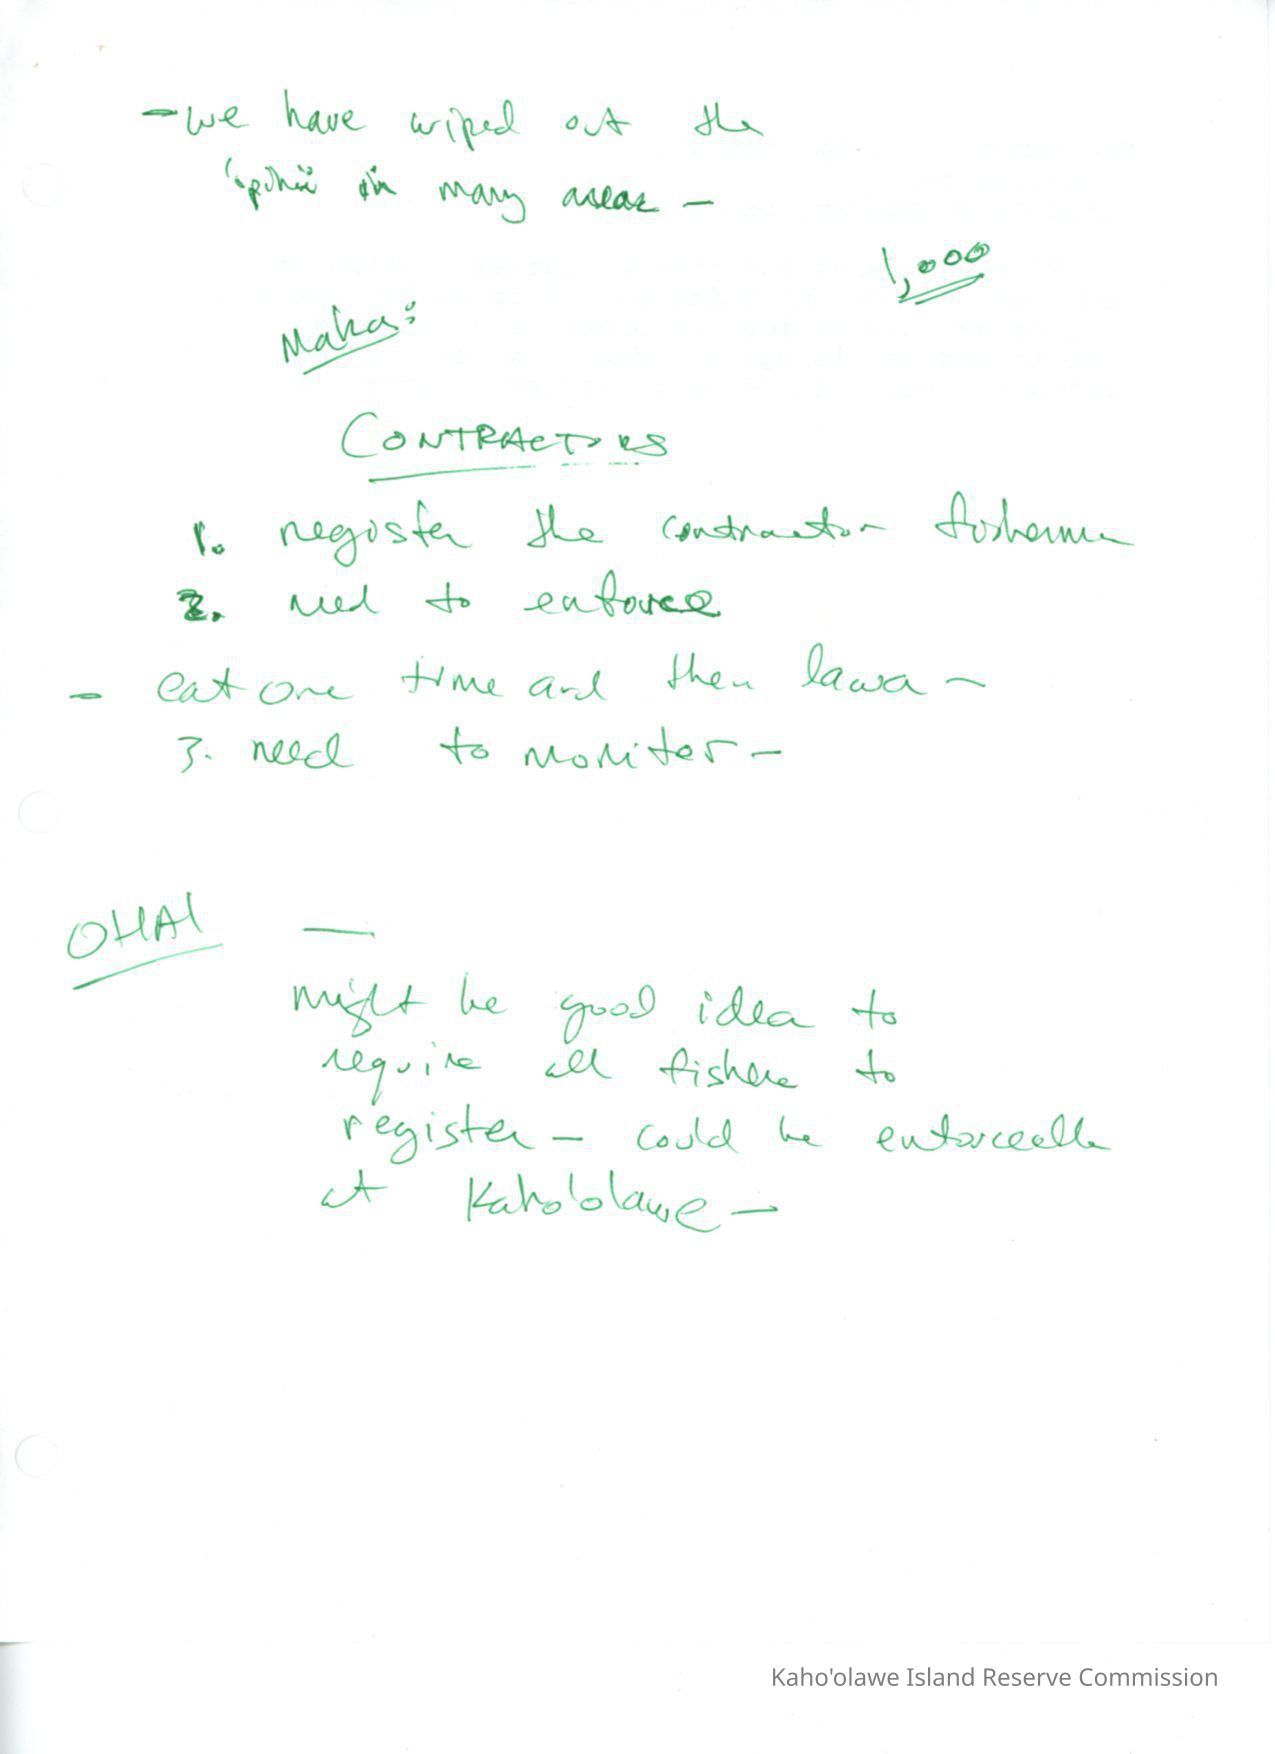 - we have wiped out the
'opihi in many areas -
1,000
Maka:
CONTRACTORS
1. register the contractor fisherman
2. need to enforce
- eat one time and then lawa -
3. need to monitor -
OHAI —
might be good idea to
require all fishers to
register - could be enforceable
at Kaho'olawe -
Kaho'olawe Island Reserve Commission